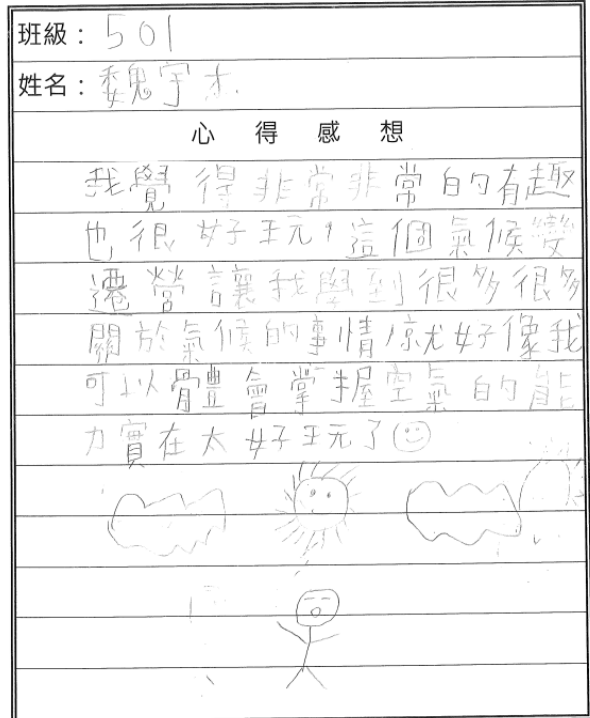 班級：501
姓名：魏宇杰.
心得感想
我覺得非常非常的有趣
也很好玩，這個氣候變
遷營讓我學到很多很多
關於氣候的事情，就好像我
可以體會掌握空氣的能
力實在太好玩了